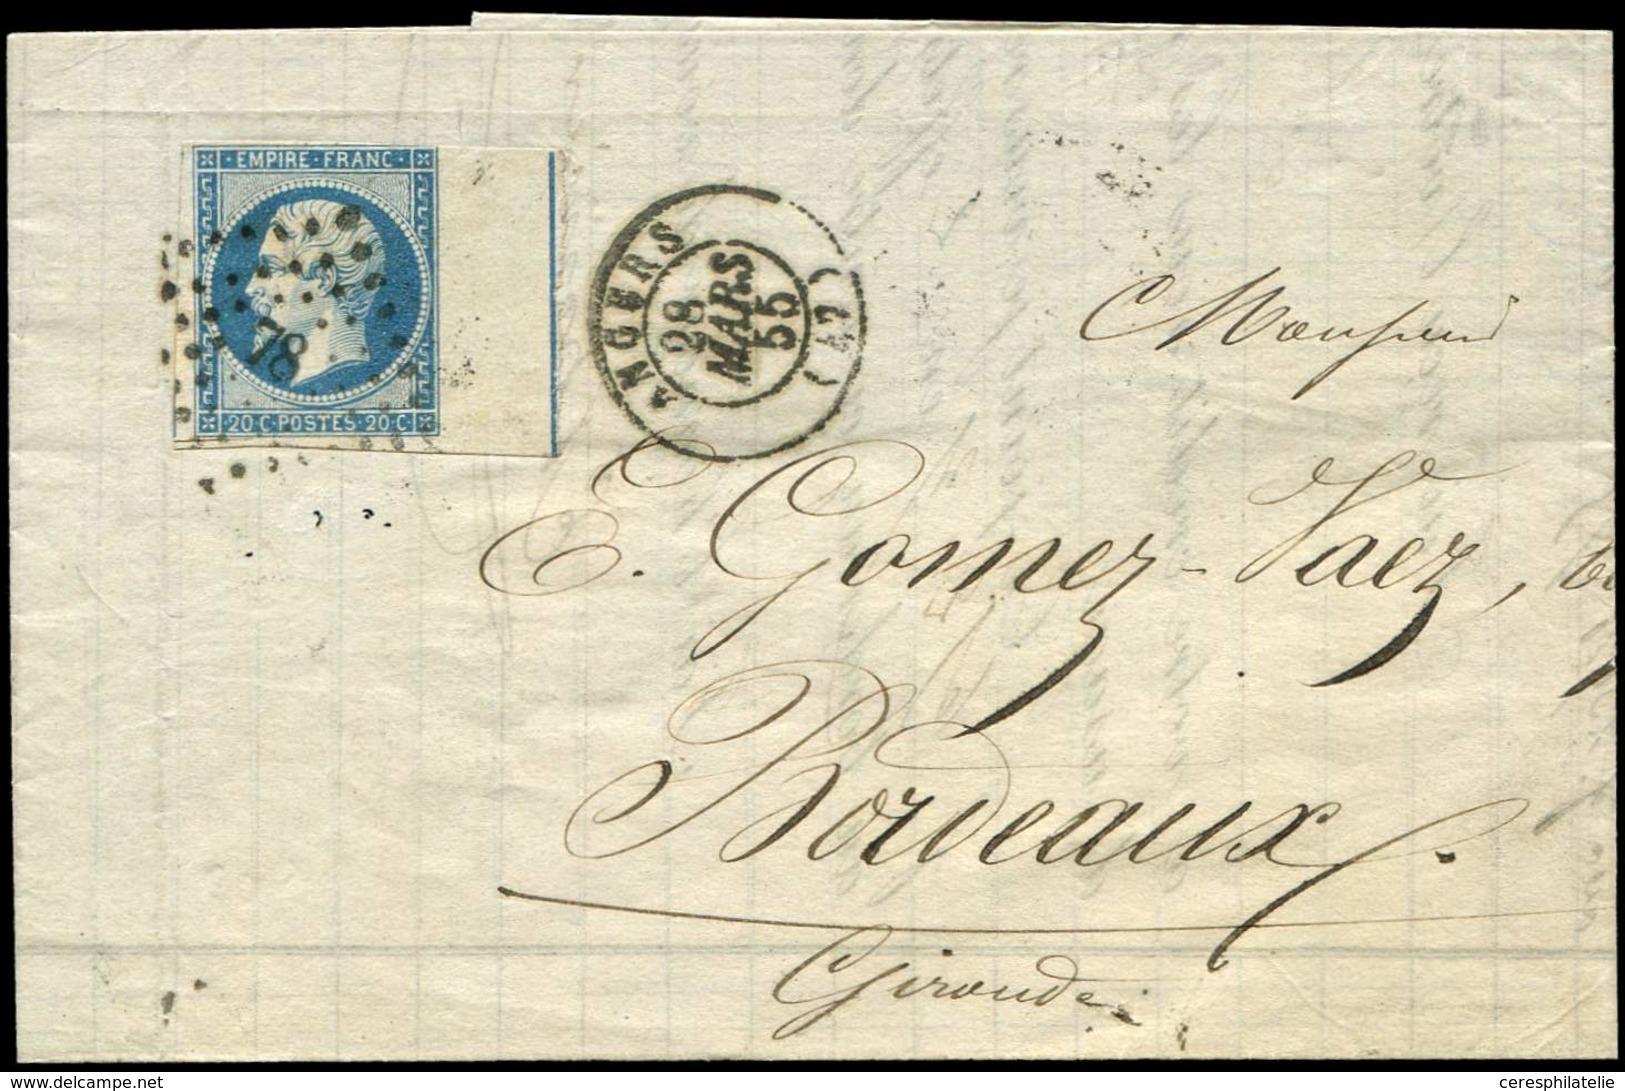 · EMPIRE · FRANC ·
78
20 · C · POSTES · 20 · C
ANGERS
28
MARS
55
(47)
Monsieur
E. Gomez-Vaez,
Bordeaux
Gironde
www.delcampe.net
ceresphilatelie